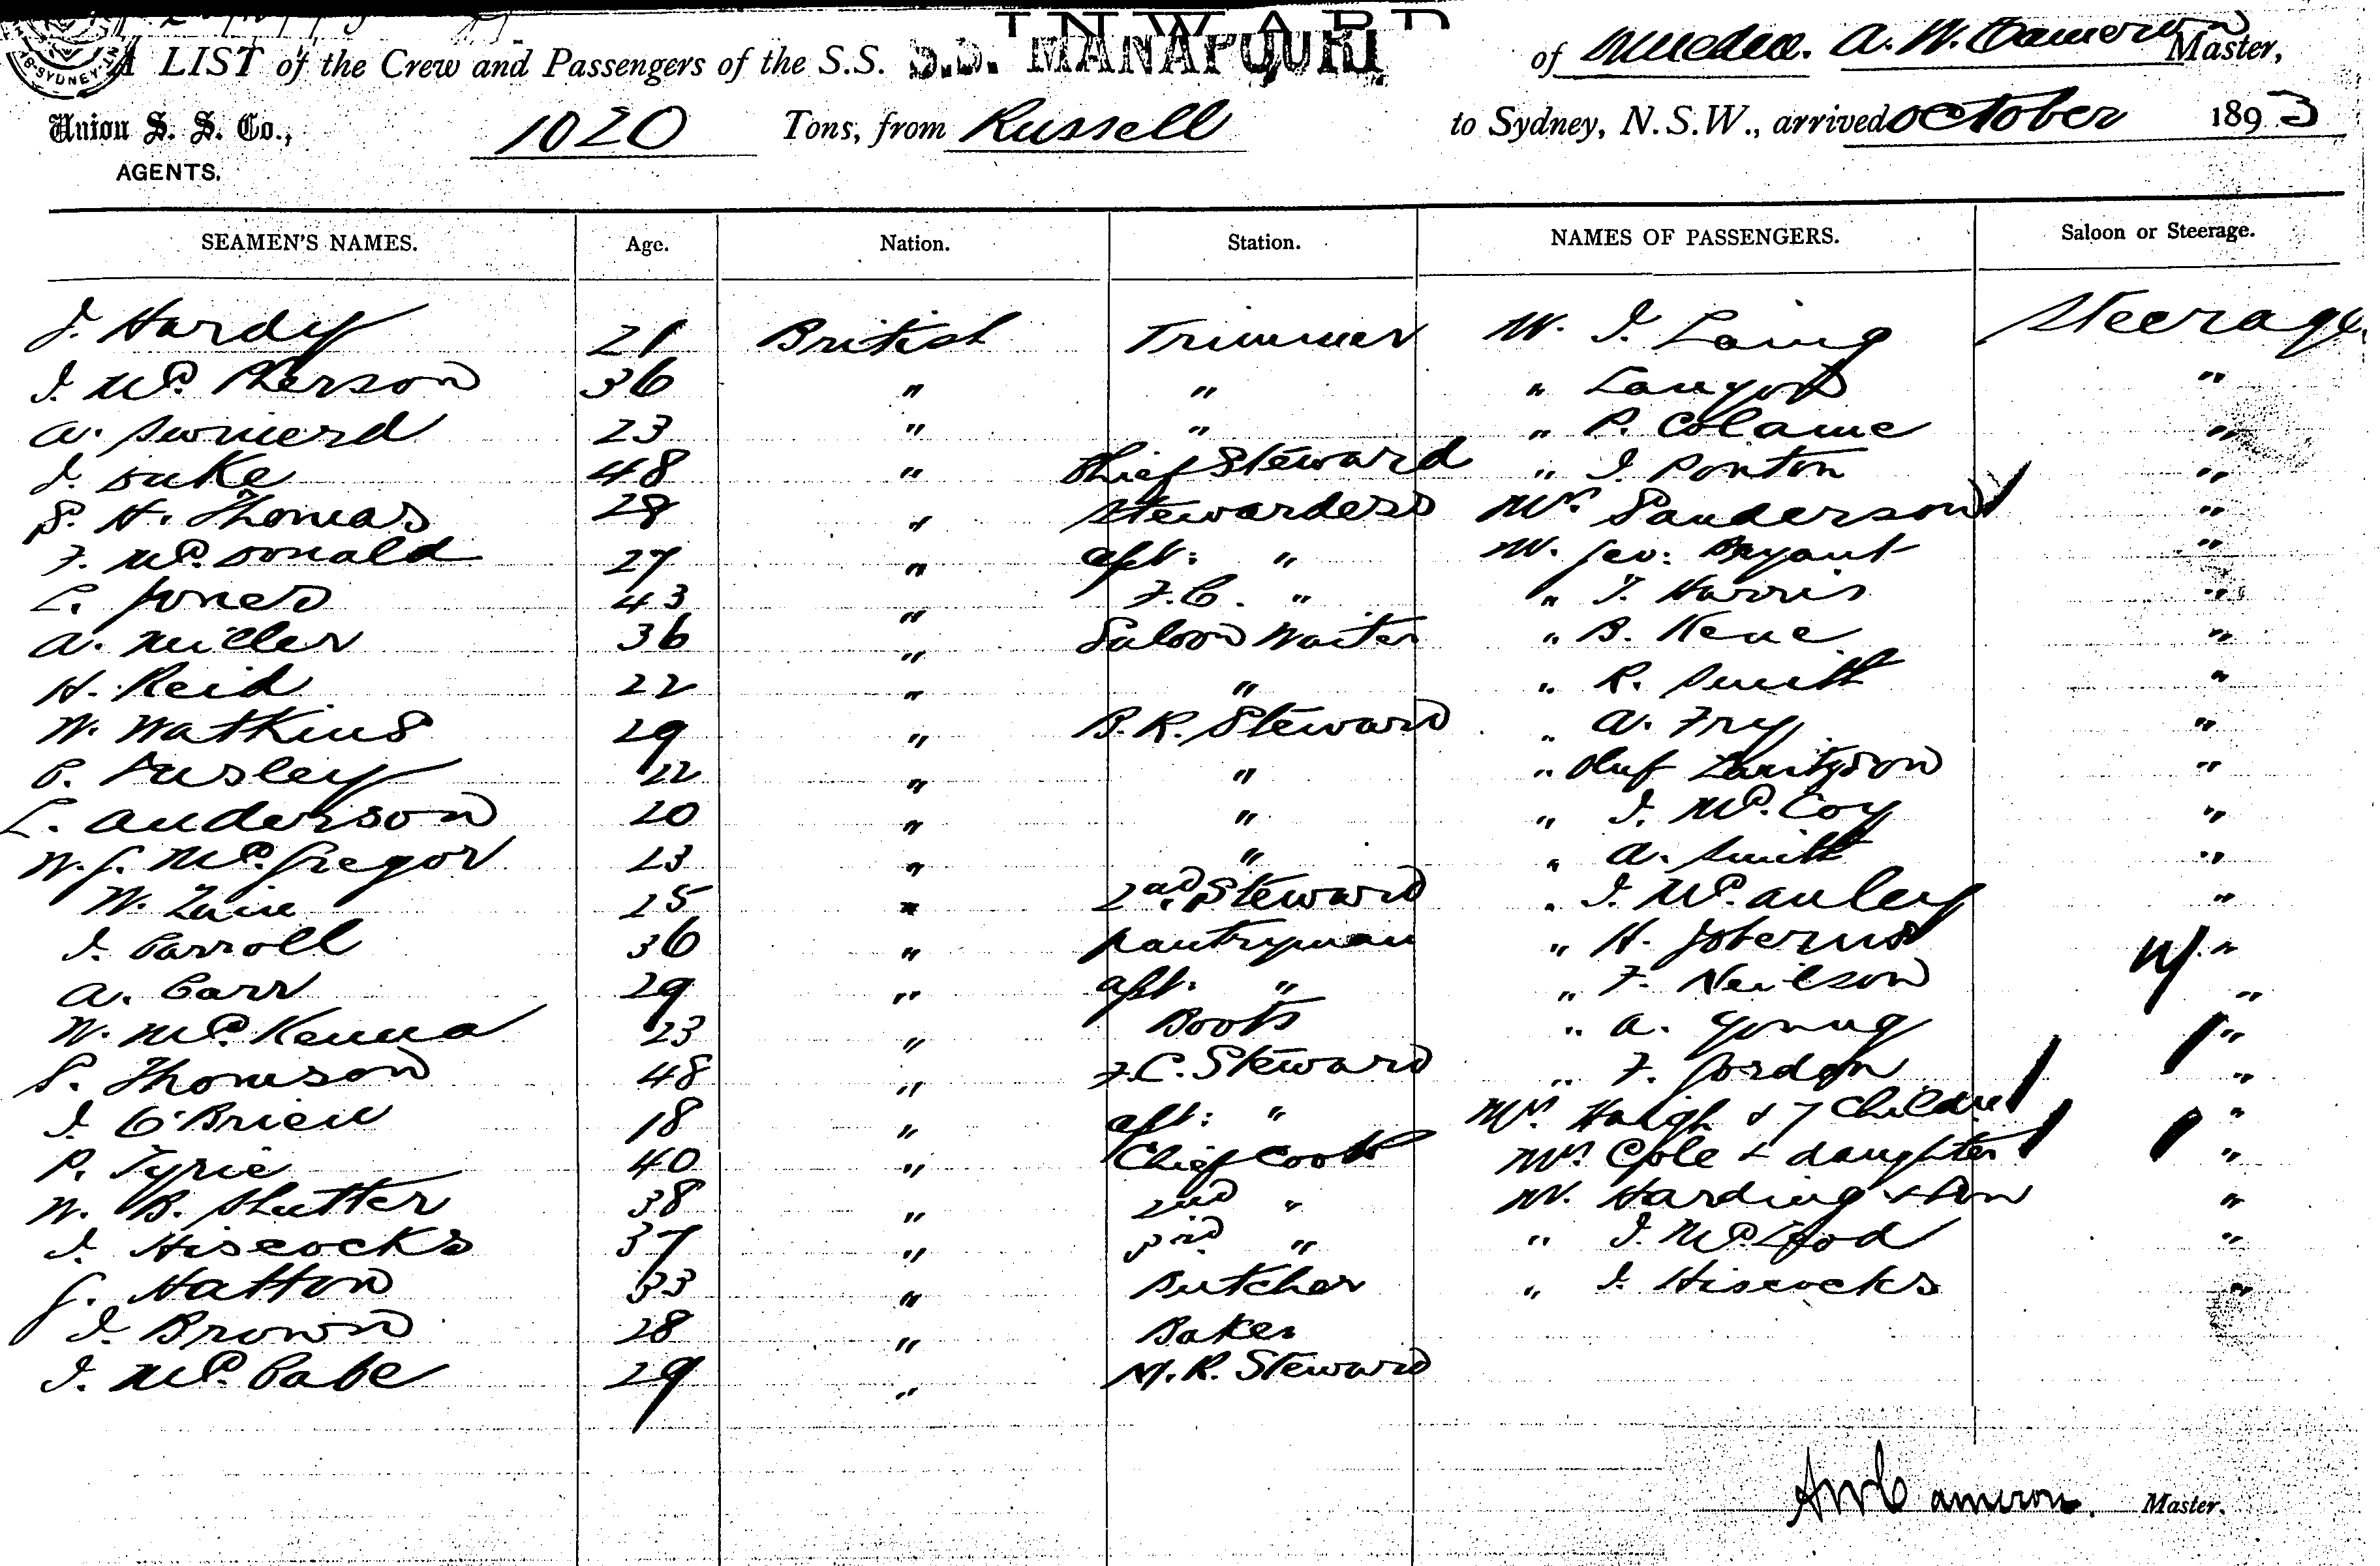 INWARD
A LIST of the Crew and Passengers of the S.S. S.S. MANAPOURI of Dunedin. A. W. Cameron Master,
Union S. S. Co., AGENTS. 1020 Tons, from Russell to Sydney, N.S.W., arrived October 1893
SEAMEN'S NAMES. Age. Nation. Station. NAMES OF PASSENGERS. Saloon or Steerage.
J. Hardy 21 British Trimmer Mr. J. Laing Steerage
J. McPherson 36 " " " "
A. 23 " " " P. Colame "
J. Duke 48 " Chief Steward " J. Ponton "
S. H. Thomas 28 " Stewardess Mrs Sanderson "
F. McDonald 27 " aft: " Mr. Geo: Bryant "
L. Jones 43 " F.C. " " T. Harris "
A. Miller 36 " Saloon Waiter " B. Kene "
H. Reid 22 " " " R. Smith "
W. Watkins 29 " B.R. Steward " A. Fry "
P. 22 " " " Oluf "
L. Anderson 20 " " " J. McCoy "
W. G. McGregor 23 " " " A. Smith "
W. 25 " 2nd Steward " J. McAuley "
J. Carroll 36 " Pantryman " H. "
A. Carr 29 " aft. " " F. Neilson "
W. McKenna 23 " Boots " A. Young "
S. Thomson 48 " F.C. Steward " F. Gordon "
J. O'Brien 18 " aft: " Mrs. Haigh & 7 Children "
P. Pyrie 40 " Chief Cook Mrs. Cole & daughter "
W. B. Shutter 38 " 2nd " Mr. Harding & Son "
J. Hiscocks 37 " 3rd " " J. McLeod "
G. Hatton 33 " Butcher " J. Hiscocks "
J. Brown 28 " Baker
J. McCabe 29 " M.R. Steward
AWCameron. Master.